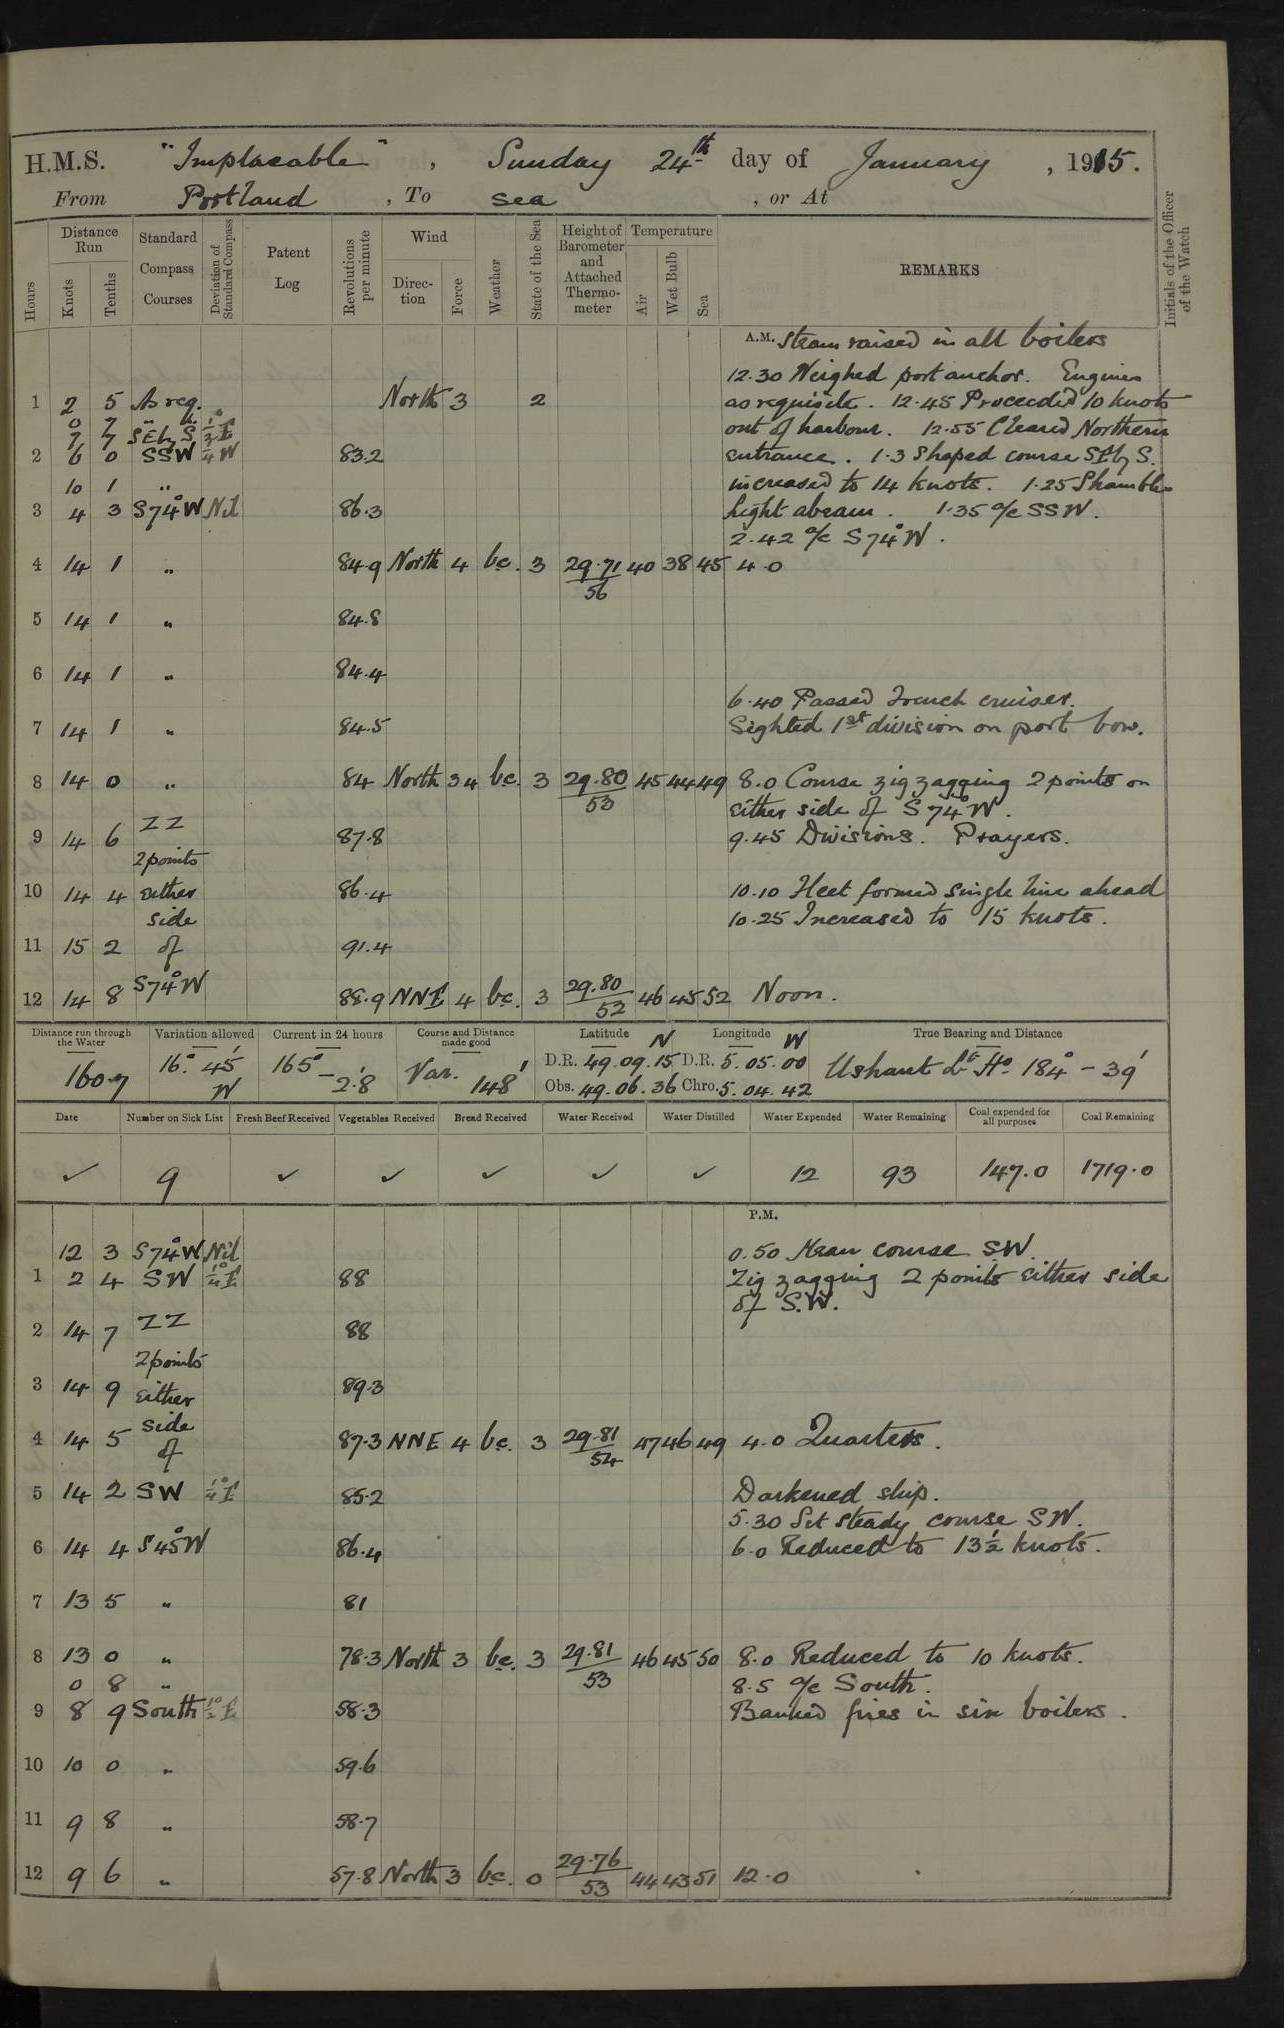 H.M.S. "Implacable", Sunday 24th day of January, 1915.
From Portland, To sea, or At
Hours
Distance Run
Knots
Tenths
Standard Compass Courses
Deviation of Standard Compass
Patent Log
Revolutions per minute
Wind
Direction
Force
Weather
State of the Sea
Height of Barometer and Attached Thermometer
Temperature
Air
Wet Bulb
Sea
REMARKS
Initials of the Officer of the Watch
A.M. Steam raised in all boilers
12.30 Weighed port anchor. Engines
1 2 5 As req. North 3 2 as requisite. 12.45 Proceeded 10 knots
0 7 " out of harbour. 12.55 Cleared Northern
7 7 SEbyS ½°E
2 6 0 SSW ¼W 83.2 entrance. 1.3 Shaped course SEbyS.
10 1 " increased to 14 knots. 1.25 Shambles
3 4 3 S74°W Nil 86.3 light abeam. 1.35 a/c SSW.
2.42 a/c S74°W.
4 14 1 " 84.9 North 4 bc. 3 29.71/56 40 38 45 4.0
5 14 1 " 84.8
6 14 1 " 84.4
6.40 Passed French cruiser.
7 14 1 " 84.5 Sighted 1st division on port bow.
8 14 0 " 84 North 34 bc. 3 29.80/53 45 44 49 8.0 Course zigzagging 2 points on
either side of S74°W.
9 14 6 ZZ 87.8 9.45 Divisions. Prayers.
2 points
10 14 4 either 86.4 10.10 Fleet formed single line ahead
side 10.25 Increased to 15 knots.
11 15 2 of 91.4
12 14 8 S74°W 88.9 NNE 4 bc. 3 29.80/52 46 45 52 Noon.
Distance run through the Water 160.7
Variation allowed 16°.45' W
Current in 24 hours 165° - 2.8'
Course and Distance made good Var. 148'
Latitude N D.R. 49.09.15 Obs. 49.06.36
Longitude W D.R. 5.05.00 Chro. 5.04.42
True Bearing and Distance Ushant Lt. Ho. 184° - 39'
Date Number on Sick List Fresh Beef Received Vegetables Received Bread Received Water Received Water Distilled Water Expended Water Remaining Coal expended for all purposes Coal Remaining
✓ 9 ✓ ✓ ✓ ✓ ✓ 12 93 147.0 1719.0
P.M.
12 3 S74°W Nil 0.50 Mean course SW.
1 2 4 SW ¼°E 88 Zig zagging 2 points either side
of S.W.
2 14 7 ZZ 88
2 points
3 14 9 either 89.3
side
4 14 5 of 87.3 NNE 4 bc. 3 29.81/54 47 46 49 4.0 Quarters.
5 14 2 SW ¼°E 85.2 Darkened ship.
5.30 Set steady course SW.
6 14 4 S45°W 86.4 6.0 Reduced to 13½ knots.
7 13 5 " 81
8 13 0 " 78.3 North 3 bc. 3 29.81/53 46 45 50 8.0 Reduced to 10 knots.
0 8 " 8.5 a/c South.
9 8 9 South ½°E 58.3 Banked fires in six boilers.
10 10 0 " 59.6
11 9 8 " 58.7
12 9 6 " 57.8 North 3 bc. 0 29.76/53 44 43 51 12.0